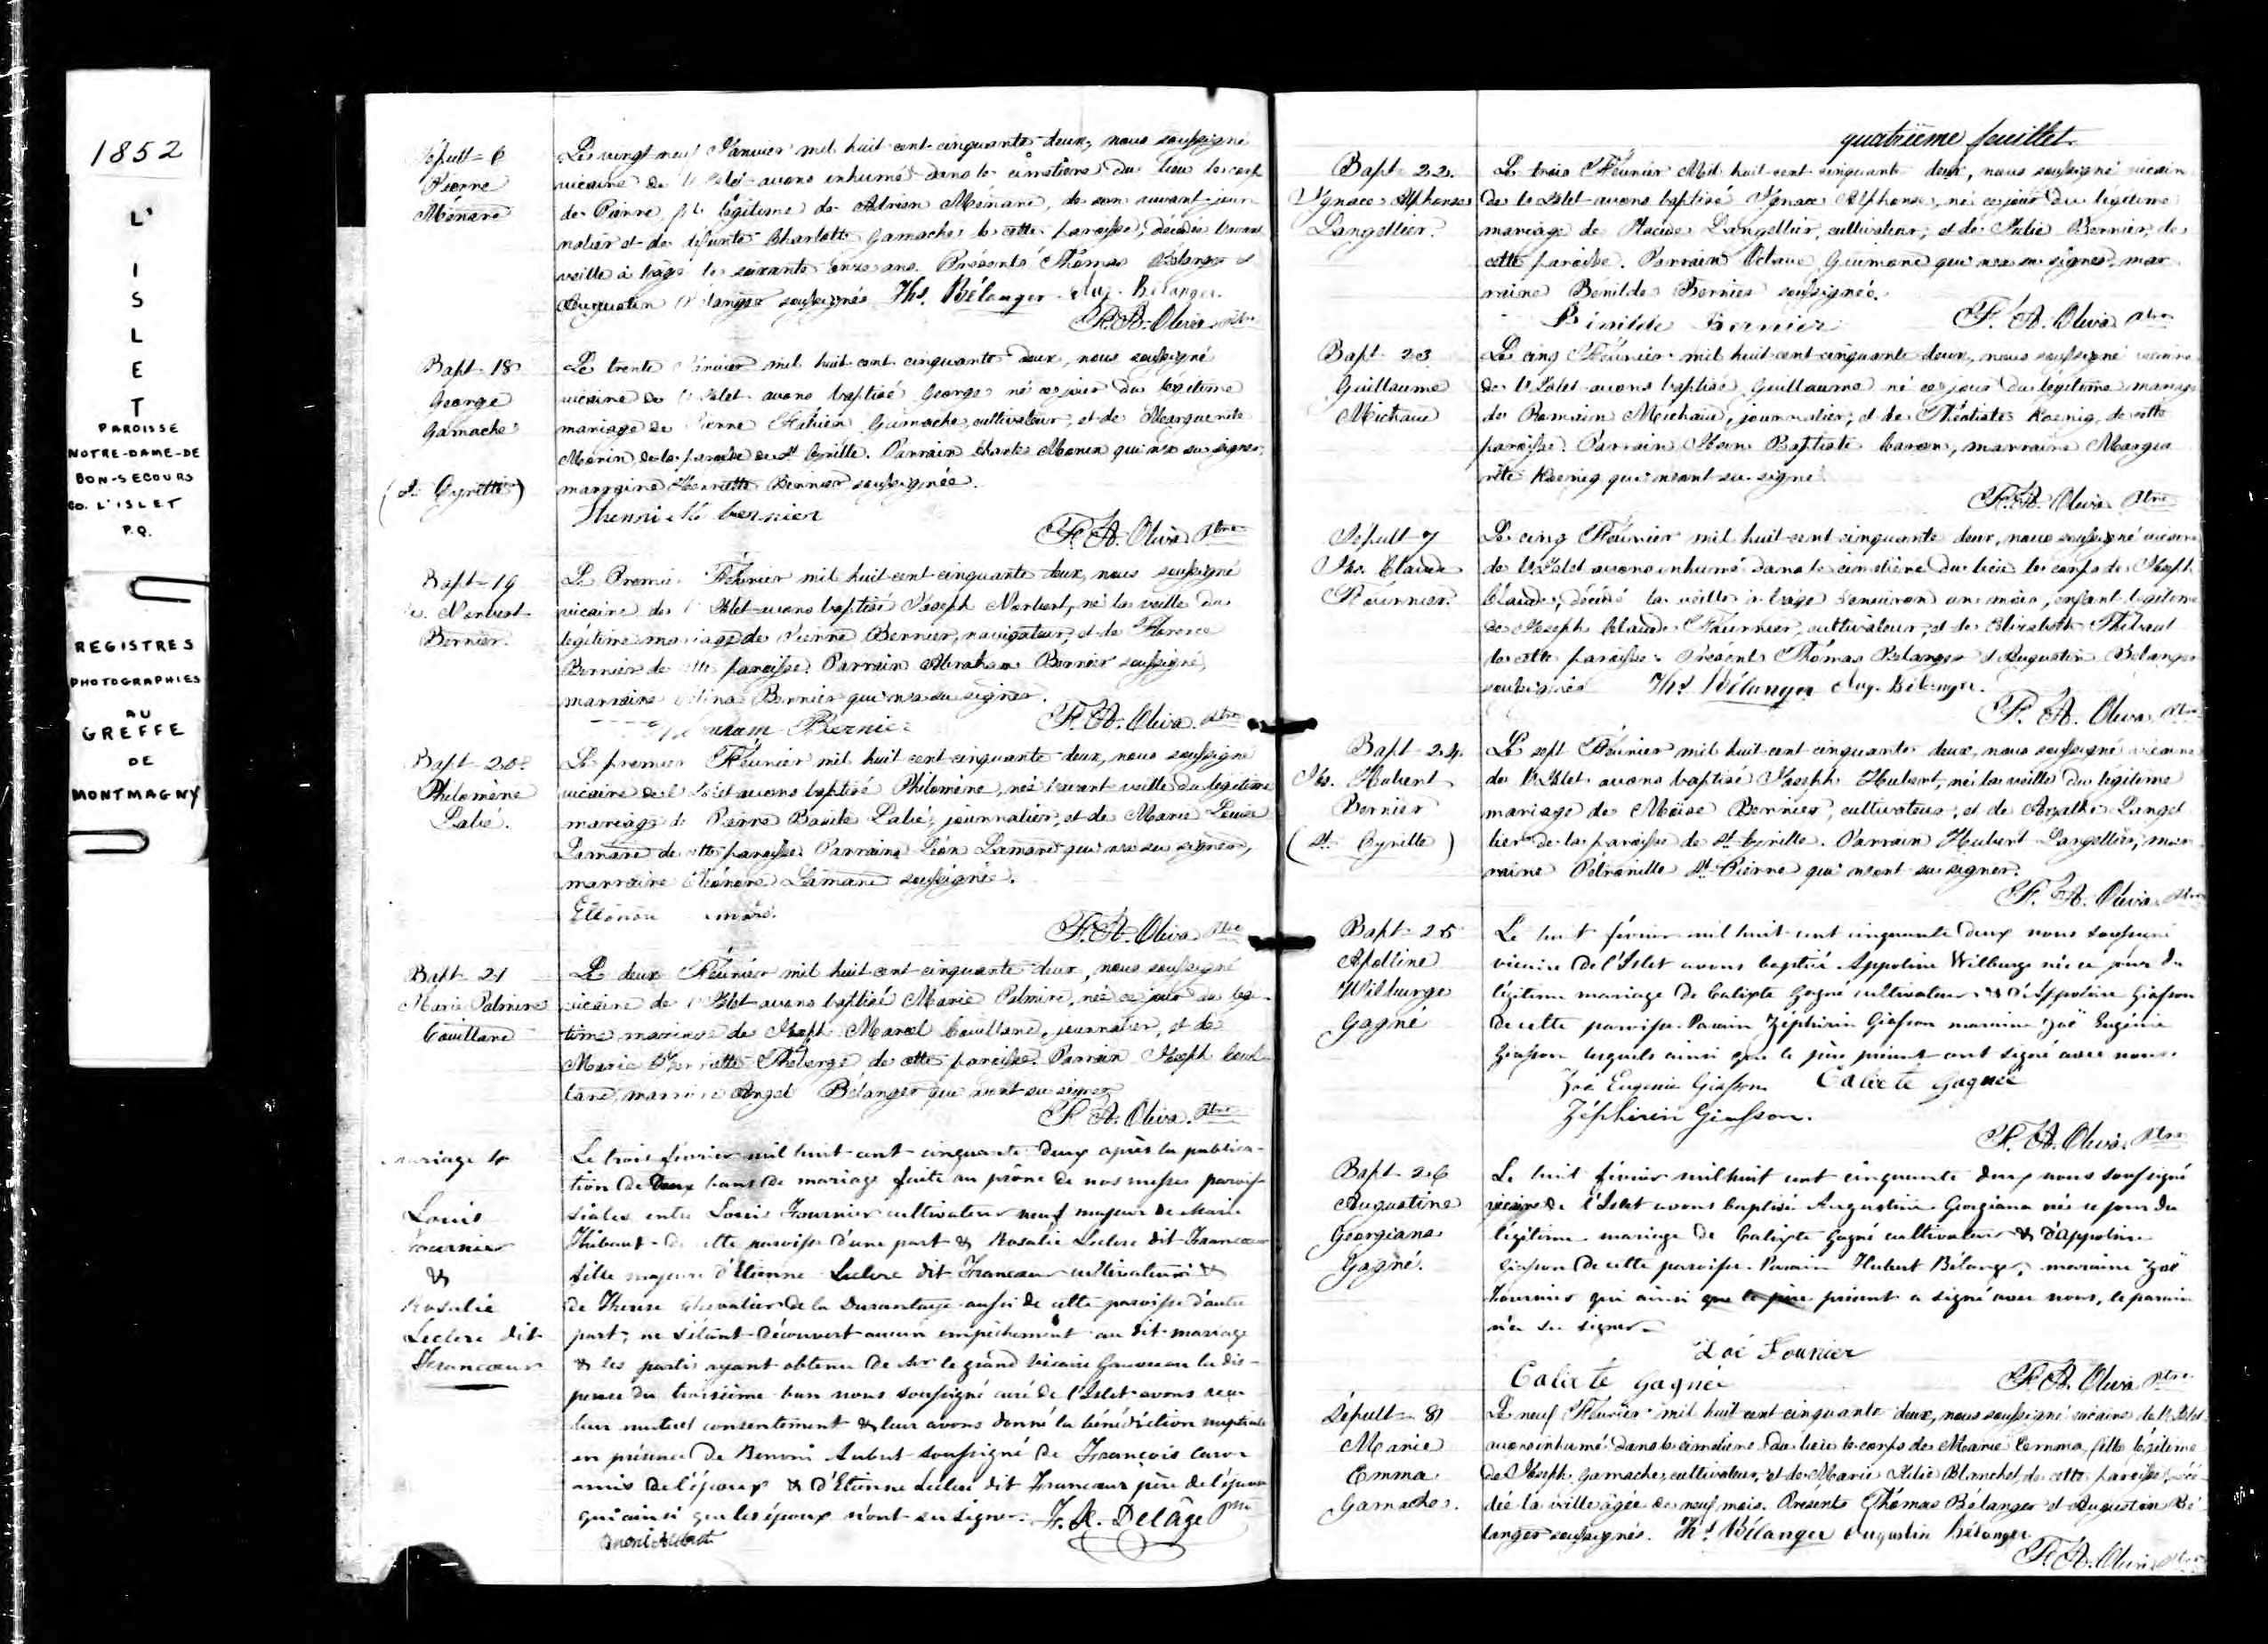 1852
L'
I
S
L
E
T
PAROISSE
NOTRE-DAME-DE
BON-SECOURS
CO. L'ISLET
P.Q.
REGISTRES
PHOTOGRAPHIES
AU
GREFFE
DE
MONTMAGNY
Sépult=6
Pierre
Ménard
Le vingt neuf Janvier mil huit cent cinquante deux, nous soussigné
vicaire de l'Islet avons inhumé dans le cimetière du lieu le corps
de Pierre, fils légitime de Adrien Ménard, de son vivant jour
nalier et de défunte Charlotte Gamache de cette paroisse, décédé l'avant
veille à l'âge de soixante onze ans. Présents Thomas Bélanger et
Augustin Bélanger soussignés Ths. Bélanger Aug. Bélanger.
F. A. Oliva Ptre
Bapt-18
George
Gamache
(St Cyrille)
Le trente Janvier mil huit cent cinquante deux, nous soussigné
vicaire de l'Islet avons baptisé George né ce jour du légitime
mariage de Pierre Gamache, cultivateur, et de Marguerite
Morin de la paroisse de St Cyrille. Parrain Charles Morin qui n'a su signer,
marraine Henriette Bernier soussignée.
Henriette bernier
F. A. Oliva Ptre
Bapt-19
Js. Norbert
Bernier.
Le Premier Février mil huit cent cinquante deux, nous soussigné
vicaire de l'Islet avons baptisé Joseph Norbert, né la veille du
légitime mariage de Pierre Bernier, navigateur, et de Florence
Bernier de cette paroisse. Parrain Abraham Bernier soussigné,
marraine Bernier qui n'a su signer.
Bernier
F. A. Oliva Ptre
Bapt-20
Philomène
Labé.
Le premier Février mil huit cent cinquante deux, nous soussigné
vicaire de l'Islet avons baptisé Philomène, née l'avant-veille du légitime
mariage de Pierre Basile Labé, journalier, et de Marie Louise
Lemard de cette paroisse. Parrain Léon Lamard qui n'a su signer,
marraine Eléonore Lamard soussignée.
F. A. Oliva Ptre
Bapt-21
Marie Palmire
Couillard
Le deux Février mil huit cent cinquante deux, nous soussigné
vicaire de l'Islet avons baptisé Marie Palmire, née ce jour du légi-
time mariage de Joseph Marcel Couillard, journalier, et de
Marie Henriette Théberge de cette paroisse. Parrain Joseph Couil-
lard, marraine Angel Bélanger qui n'ont su signer
F. A. Oliva. Ptre
mariage 4
Louis
Fournier
&
Rosalie
Leclerc dit
Francoeur
Le trois février mil huit cent cinquante deux après la publica-
tion de deux bans de mariage faite au prône de nos messes parois-
siales entre Louis Fournier cultivateur veuf majeur de Marie
Thibaut de cette paroisse d'une part & Rosalie Leclerc dit Francoeur
fille majeure d'Etienne Leclerc dit Francoeur cultivateur &
de Therese Chevalier de la Durantaye aussi de cette paroisse d'autre
part; ne s'étant découvert aucun empêchement au dit mariage
& les parties ayant obtenu de Mr le grand Vicaire la dis-
pense du troisième ban nous soussigné curé de l'Islet avons reçu
leur mutuel consentement & leur avons donné la bénédiction nuptiale
en présence de Benoni Aubut soussigné de François Caron
amis de l'époux & d'Etienne Leclerc dit Francoeur père de l'épouse
qui ainsi que les époux n'ont su signer. F. X. Delâge ptre
Benoni Aubut
quatrième feuillet
Bapt-22.
Ignace Alphonse
Langellier.
Le trois Février Mil huit cent cinquante deux, nous soussigné vicaire
de l'Islet avons baptisé Ignace Alphonse, né ce jour du légitime
mariage de Placide Langellier, cultivateur, et de Julie Bernier, de
cette paroisse. Parrain Octave Guimond qui n'a su signer, mar
raine Benilde Bernier soussignée.
Binilde Bernier
F. A. Oliva Ptre
Bapt-23
Guillaume
Michaud
Le cinq Février mil huit cent cinquante deux, nous soussigné vicaire
de l'Islet avons baptisé Guillaume né ce jour du légitime mariage
de Romain Michaud, journalier, et de Théotiste Koenig, de cette
paroisse. Parrain Jean Baptiste Caron, marraine Margue
rite Koenig qui n'ont su signé
F. A. Oliva Ptre
Sépult-7
Jos. Claude
Fournier.
Le cinq Février mil huit cent cinquante deux, nous soussigné vicaire
de l'Islet avons inhumé dans le cimetière du lieu le corps de Joseph
Claude, décédé la veille à l'âge d'environ un mois, enfant légitime
de Joseph Claude Fournier, cultivateur, et de Elizabeth Thibaut
de cette paroisse. Présents Thomas Bélanger et Augustin Bélanger
soussignés Ths Bélanger Aug. Bélanger.
F. A. Oliva Ptre
Bapt-24
Js. Hubert
Bernier
(St. Cyrille)
Le sept Février mil huit cent cinquante deux, nous soussigné vicaire
de l'Islet avons baptisé Joseph Hubert, né la veille du légitime
mariage de Moïse Bernier, cultivateur, et de Agathe Langel
lier de la paroisse de St Cyrille. Parrain Hubert Langellier, mar
raine Pétronille St Pierre qui n'ont su signer.
F. A. Oliva Ptre
Bapt-25
Apolline
Wilburge
Gagné
Le huit février mil huit cent cinquante deux nous soussigné
vicaire de l'Islet avons baptisé Appoline Wilburge née ce jour du
légitime mariage de Calixte Gagné cultivateur & d'Appoline Giasson
de cette paroisse. Parrain Zéphirin Giasson marraine Zoé Eugénie
Giasson lesquels ainsi que le père présent ont signé avec nous.
Zoé Eugenie Giasson Calixte Gagnée
Zéphirin Giasson.
F. A. Oliva. Ptre
Bapt-26
Augustine
Georgiana
Gagné.
Le huit février mil huit cent cinquante deux nous soussigné
vicaire de l'Islet avons baptisé Augustine Georgiana née ce jour du
légitime mariage de Calixte Gagné cultivateur & d'Appoline
Giasson de cette paroisse. Parrain Hubert Bélanger, marraine Zoé
Fournier qui ainsi que le père présent a signé avec nous, le parrain
n'a su signer.
Zoé Founier
Calixte Gagnée
F. A. Oliva Ptre
Sépult-8
Marie
Emma
Gamache.
Le neuf Février mil huit cent cinquante deux, nous soussigné vicaire de l'Islet
avons inhumé dans le cimetière du lieu le corps de Marie Emma, fille légitime
de Joseph Gamache, cultivateur, et de Marie Blanchet, de cette paroisse, décé
dée la veille âgée de neuf mois. Présents Thomas Bélanger et Augustin Bé
langer soussignés. Ths Bélanger Augustin Bélanger
F. A. Oliva Ptre